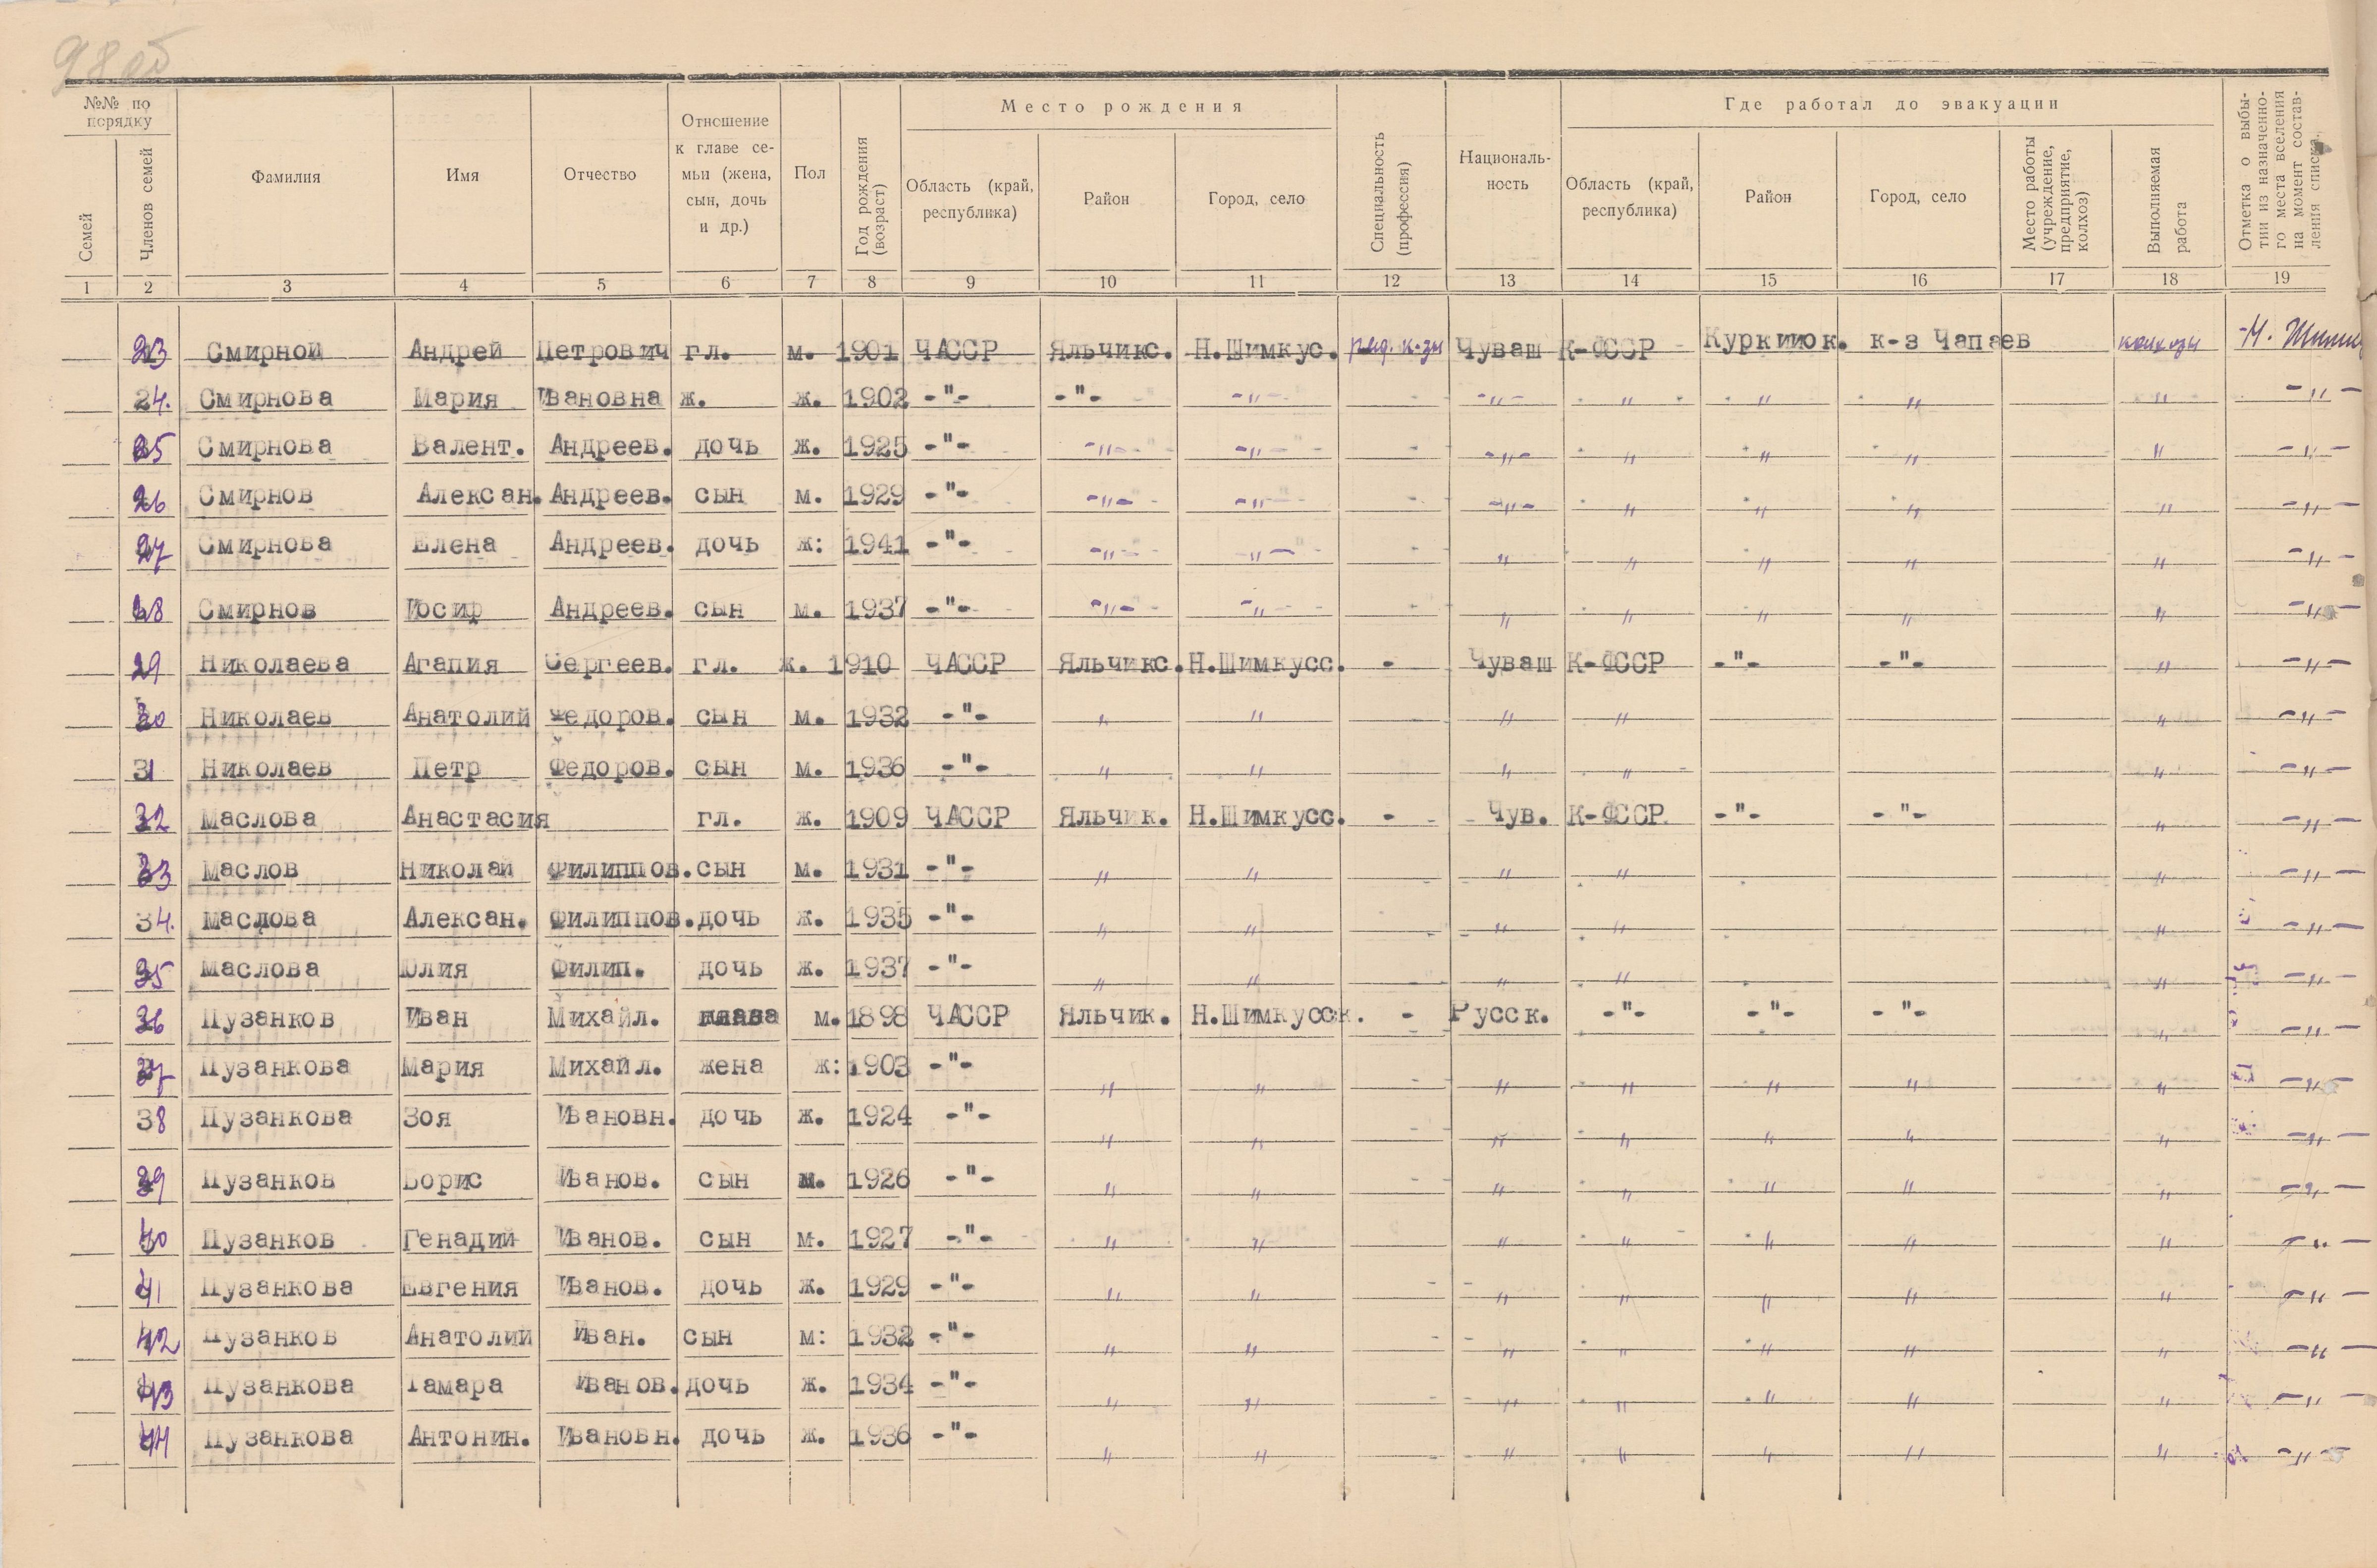 98 об
№№ по порядку
Семей
Членов семей
Фамилия
Имя
Отчество
Отношение к главе семьи (жена, сын, дочь и др.)
Пол
Год рождения (возраст)
Место рождения
Область (край, республика)
Район
Город, село
Специальность (профессия)
Националь-ность
Где работал до эвакуации
Область (край, республика)
Район
Город, село
Место работы (учреждение, предприятие, колхоз)
Выполняемая работа
Отметка о выбы-тии из назначенно-го места вселения на момент состав-ления списка.
1 2 3 4 5 6 7 8 9 10 11 12 13 14 15 16 17 18 19
23 Смирнов Андрей Петрович гл. м. 1901 ЧАССР Яльчикс. Н.Шимкус. Чуваш К-ФССР Куркииок. к-з Чапаев
24. Смирнова Мария Ивановна ж. ж. 1902 -"- -"- -"- -"- " " " " -"-
25 Смирнова Валент. Андреев. дочь ж. 1925 -"- -"- -"- -"- " " " " -"-
26 Смирнов Алексан. Андреев. сын м. 1929 -"- -"- -"- -"- " " " " -"-
27 Смирнова Елена Андреев. дочь ж: 1941 -"- -"- "- " " " " " -"-
28 Смирнов Иосиф Андреев. сын м. 1937 -"- -"- -"- " " " " " -"-
29 Николаева Агапия Сергеев. гл. ж. 1910 ЧАССР Яльчикс. Н.Шимкусс. - Чуваш К-ФССР -"- -"- " -"-
30 Николаев Анатолий Федоров. сын м. 1932 -"- " " " " " -"-
31 Николаев Петр Федоров. сын м. 1936 -"- " " " " " -"-
32 Маслова Анастасия гл. ж. 1909 ЧАССР Яльчик. Н.Шимкусс. - Чув. К-ФССР -"- -"- " -"-
33 Маслов Николай Филиппов. сын м. 1931 -"- " " " " " -"-
34. Маслова Алексан. Филиппов. дочь ж. 1935 -"- " " " " " -"-
35 Маслова Юлия Филип. дочь ж. 1937 -"- " " " " " -"-
36 Пузанков Иван Михайл. глава м. 1898 ЧАССР Яльчик. Н.Шимкусск. - Русск. -"- -"- -"- " -"-
37 Пузанкова Мария Михайл. жена ж: 1903 -"- " " " " " " " -"-
38 Пузанкова Зоя Ивановн. дочь ж. 1924 -"- " " " " " " " -"-
39 Пузанков Борис Иванов. сын м. 1926 -"- " " " " " " " -"-
40 Пузанков Генадий Иванов. сын м. 1927 -"- " " " " " " " -"-
41 Пузанкова Евгения Иванов. дочь ж. 1929 -"- " " " " " " " -"-
42 Пузанков Анатолий Иван. сын м: 1932 -"- " " " " " " " -"-
43 Пузанкова Тамара Иванов. дочь ж. 1934 -"- " " " " " " " -"-
44 Пузанкова Антонин. Ивановн. дочь ж. 1936 -"- " " " " " " " -"-